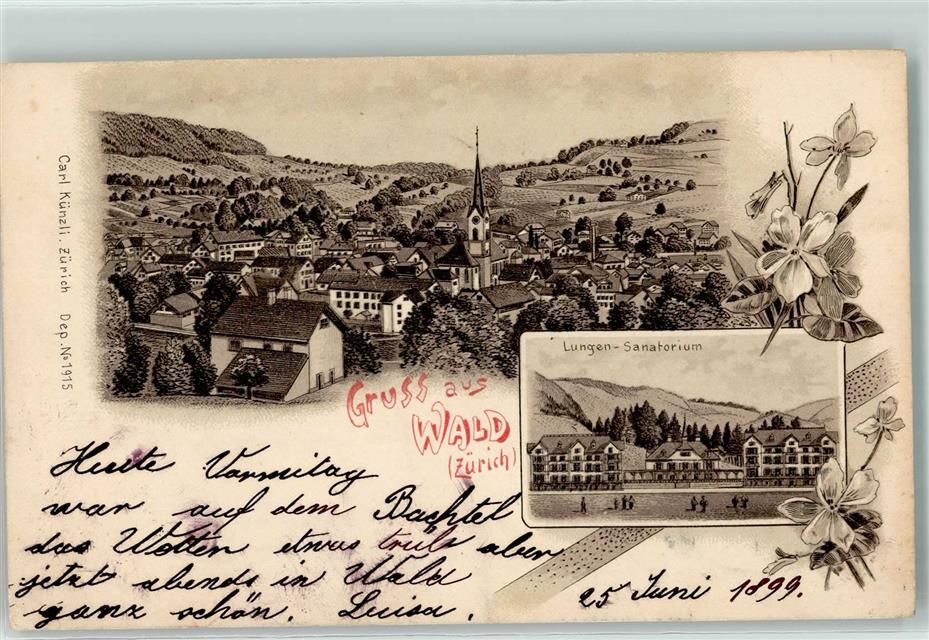 Carl Künzli. Zürich Dep. No 1915
Lungen-Sanatorium
Gruss aus
WALD
(Zürich)
Heute Vormittag
war auf dem Bachtel
das etwas trüb aber
jetzt abends in Wald
ganz schön. Luisa.
25 Juni 1899.